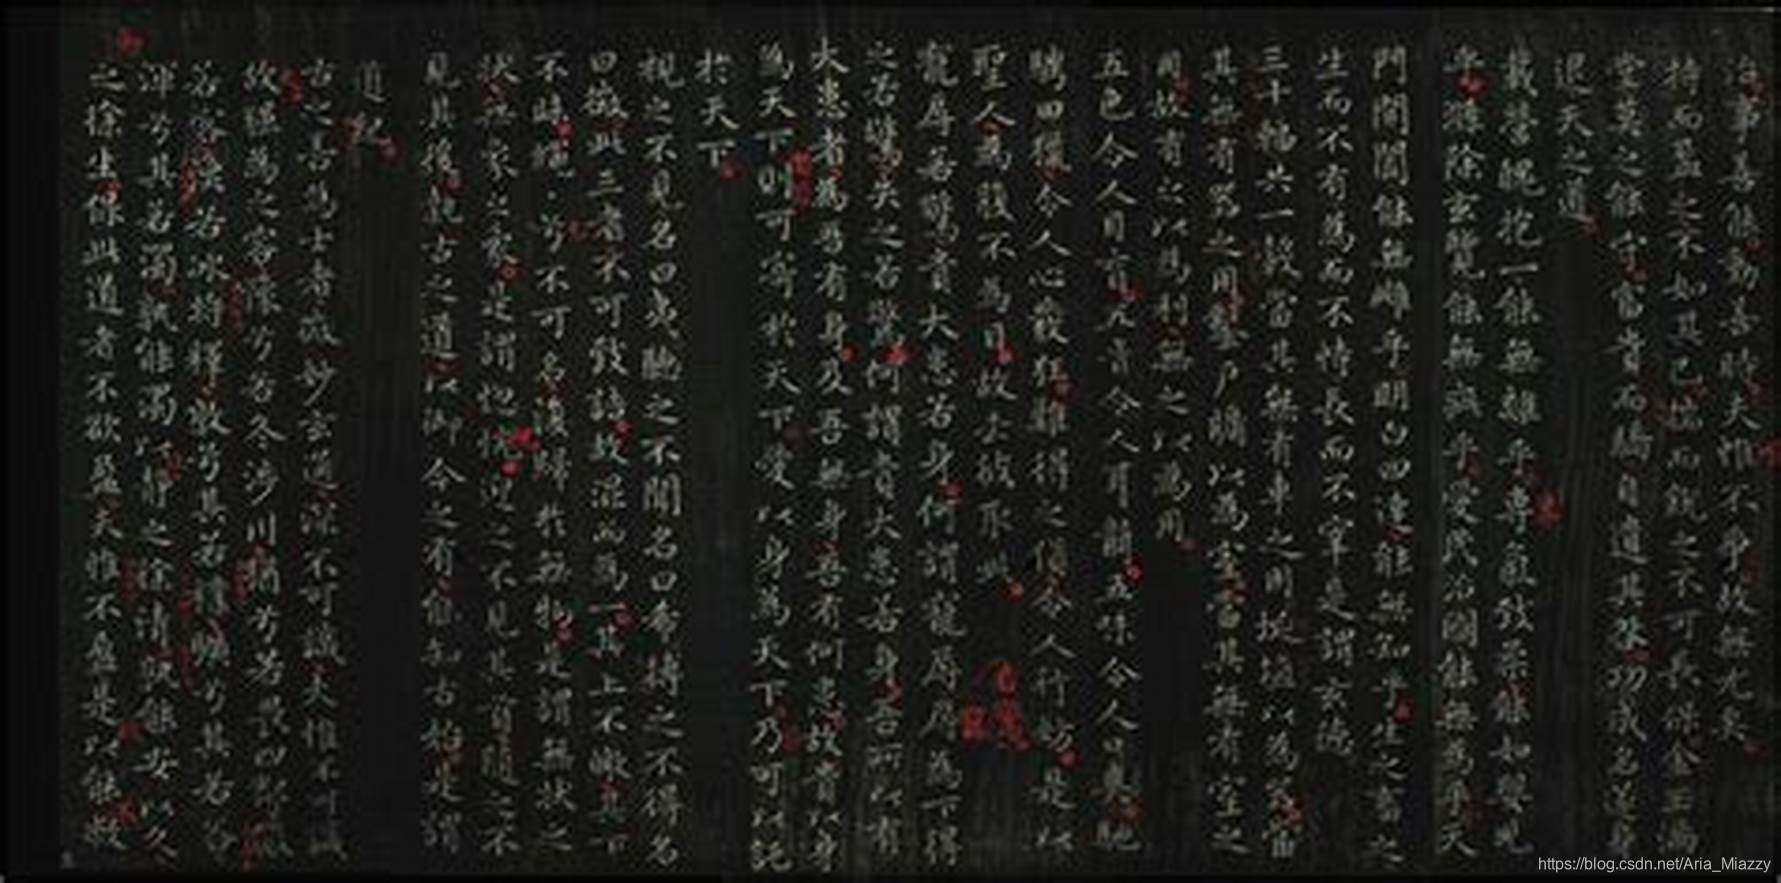 治事善能動善時夫惟不爭故無尤矣
持而盈之不如其已揣而銳之不可長保金玉滿
堂莫之能守富貴而驕自遺其咎功成名遂身
退天之道
載營魄抱一能無離乎專氣致柔能如嬰兒
乎滌除玄覽能無疵乎愛民治國能無為乎天
門開闔能無雌乎明白四達能無知乎生之畜之
生而不有為而不恃長而不宰是謂玄德
三十輻共一轂當其無有車之用埏埴以為器當
其無有器之用鑿戶牖以為室當其無有室之
用故有之以為利無之以為用
五色令人目盲五音令人耳聾五味令人口爽馳
騁田獵令人心發狂難得之貨令人行妨是以
聖人為腹不為目故去彼取此
寵辱若驚貴大患若身何謂寵辱辱為下得
之若驚失之若驚何謂貴大患若身吾所以有
大患者為吾有身及吾無身吾有何患故貴以身
為天下則可寄於天下愛以身為天下乃可以託
於天下
視之不見名曰夷聽之不聞名曰希搏之不得名
曰微此三者不可致詰故混而為一其上不皦其下
不昧繩繩兮不可名復歸於無物是謂無狀之
狀無象之象是謂惚恍迎之不見其首隨之不
見其後執古之道以御今之有能知古始是謂
道紀
古之善為士者微妙玄通深不可識夫惟不可識
故強為之容豫兮若冬涉川猶兮若畏四鄰儼
若容渙若冰將釋敦兮其若樸曠兮其若谷
渾兮其若濁孰能濁以靜之徐清孰能安以久
之徐生保此道者不欲盈夫惟不盈是以能敝
https://blog.csdn.net/Aria_Miazzy